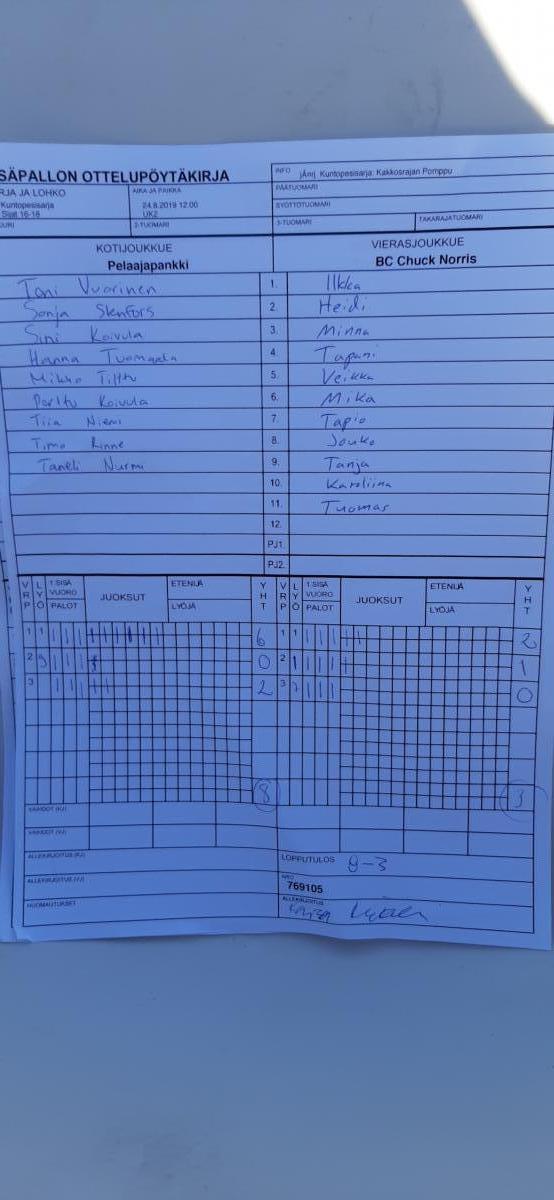 SÄPALLON OTTELUPÖYTÄKIRJA
INFO jÄnrj. Kuntopesisarja: Kakkosrajan Pomppu
RJA JA LOHKO
Kuntopesisarja
Sijat 16-18
AIKA JA PAIKKA
24.8.2019 12.00
UK2
PÄÄTUOMARI
SYÖTTÖTUOMARI
URI
2-TUOMARI
3-TUOMARI
TAKARAJATUOMARI
KOTIJOUKKUE
Pelaajapankki
VIERASJOUKKUE
BC Chuck Norris
Toni Vuorinen 1. Ilkka
Sonja Stenfors 2. Heidi
Sini Koivula 3. Minna
Hanna Tuomaala 4. Tapani
Mikko Tilttu 5. Veikka
Perttu Koivula 6. Mika
Tiia Niemi 7. Tapio
Timo Rinne 8. Jouko
Taneli Nurmi 9. Tanja
10. Karoliina
11. Tuomas
12.
PJ1.
PJ2.
VRP LYÖ 1.SISÄ VUORO PALOT JUOKSUT ETENIJÄ LYÖJÄ YHT VRP LYÖ 1.SISÄ VUORO PALOT JUOKSUT ETENIJÄ LYÖJÄ YHT
1 1 6 1 1 2
2 9 0 2 1 1
3 2 3 7 0
8 3
VAIHDOT (KJ)
VAIHDOT (VJ)
ALLEKIRJOITUS (KJ)
LOPPUTULOS 8-3
ALLEKIRJOITUS (VJ)
NRO
769105
HUOMAUTUKSET
ALLEKIRJOITUS